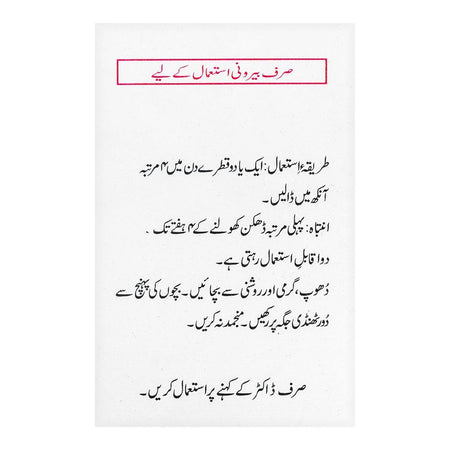 صرف بیرونی استعمال کے لیے
طریقۂ استعمال: ایک یا دو قطرے دن میں ۴ مرتبہ
آنکھ میں ڈالیں۔
انتباہ: پہلی مرتبہ ڈھکن کھولنے کے ۴ ہفتے تک
دوا قابلِ استعمال رہتی ہے۔
دُھوپ، گرمی اور روشنی سے بچائیں۔ بچوں کی پہنچ سے
دُور ٹھنڈی جگہ پر رکھیں۔ منجمد نہ کریں۔
صرف ڈاکٹر کے کہنے پر استعمال کریں۔